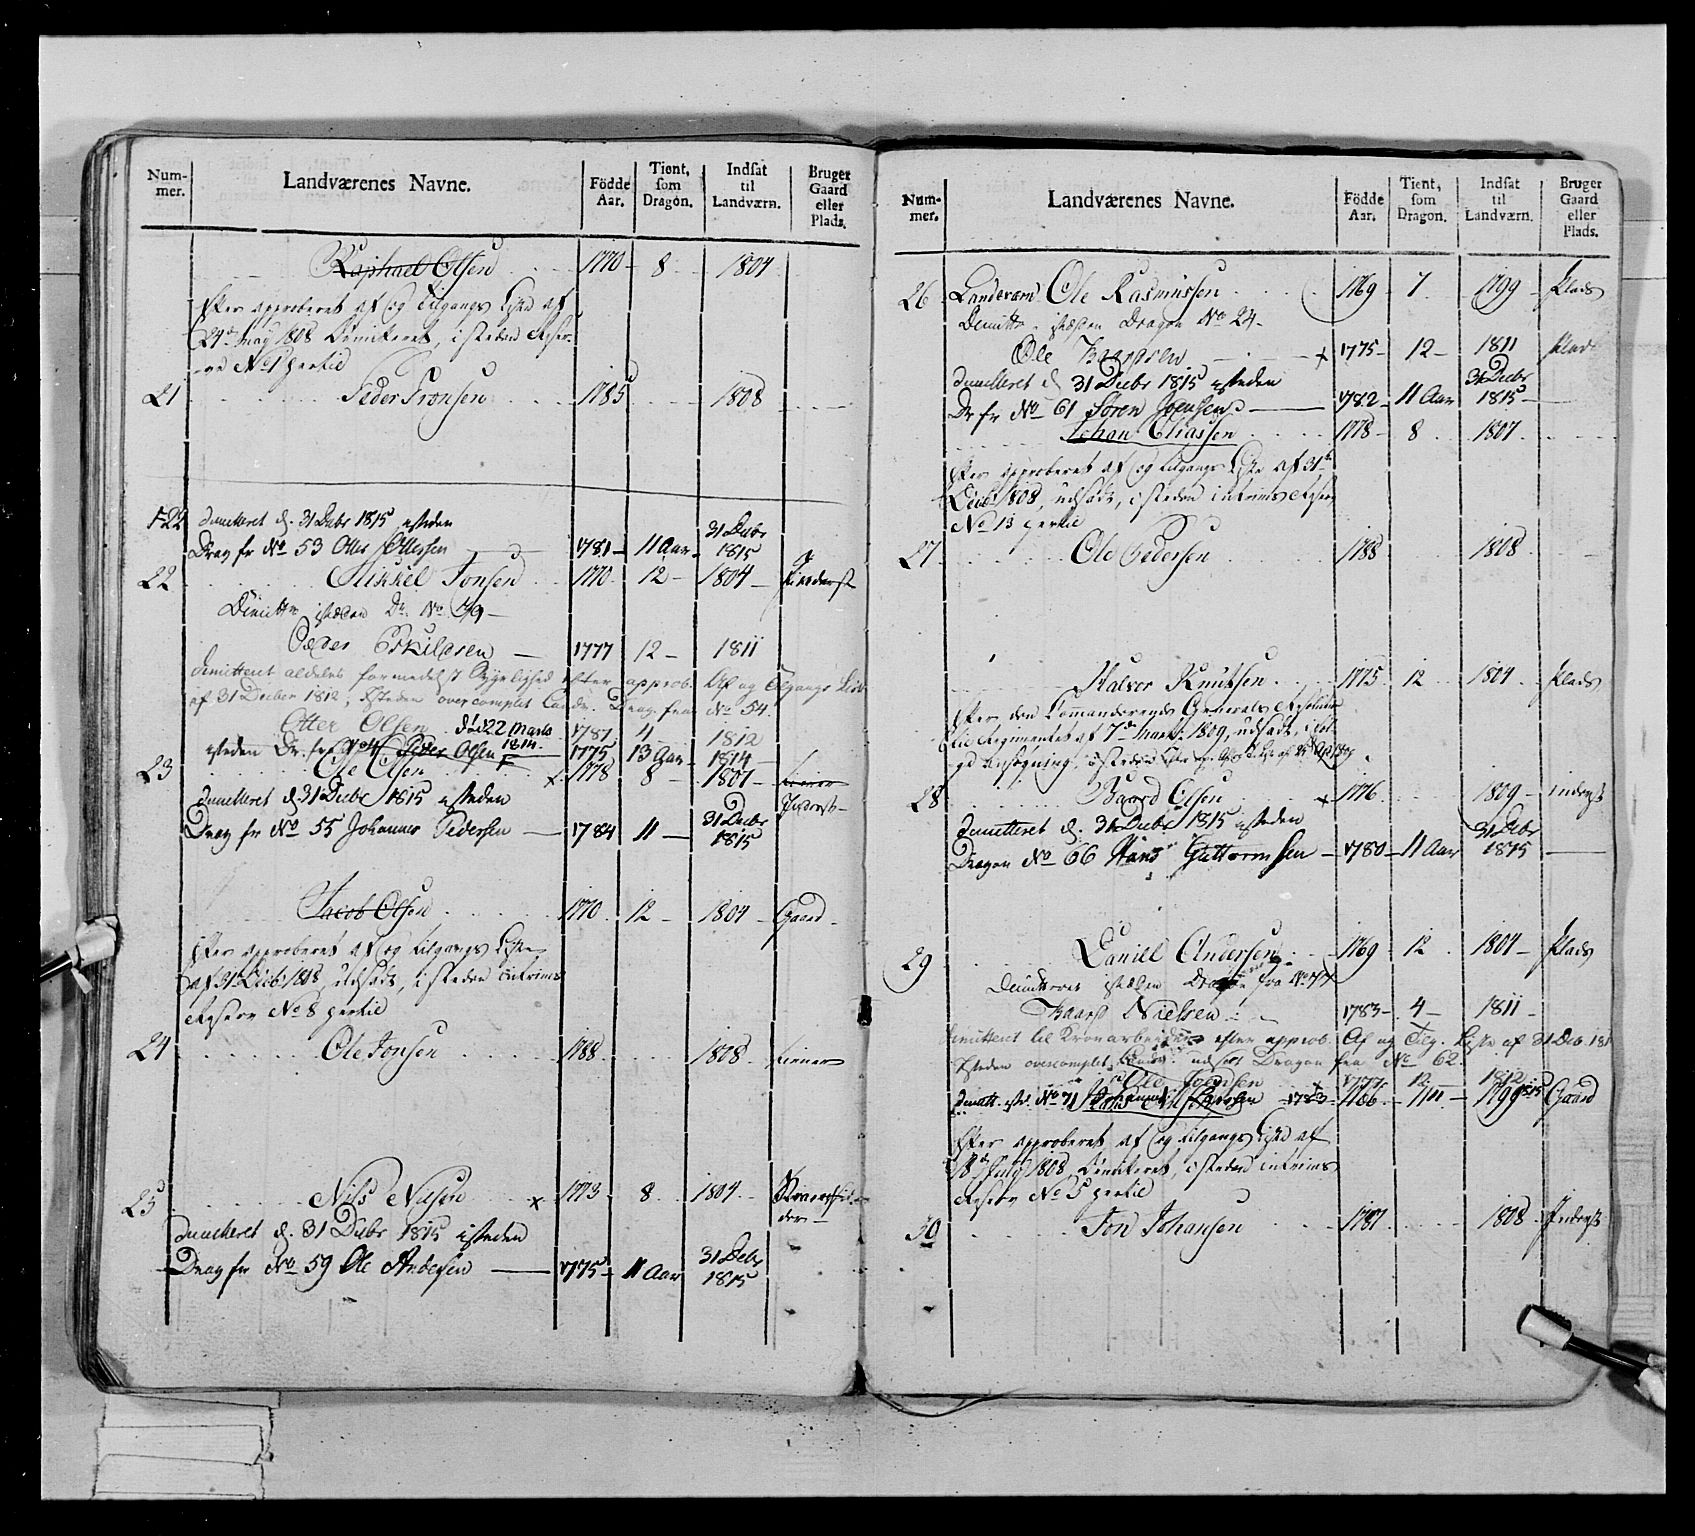 Num- mer. Landværenes Navne. Födde Aar. Tient, som Dragon. Indsat til Landværn. Bruger Gaard eller Plads.
Raphael Olsen 1770 8 1804
Efter approberet af og tilgangs Liste af
24de May 1808 Dimitteret, i steden Reser-
ve No 1 pertid
21 Peder Tronsen 1785 1808
22 Dimitteret d. 31 Decbr 1815 isteden 31 Decbr
Drag fr No 53 Otter Ottersen 1781 11 Aar 1815
22 Mikkel Jonsen 1770 12 1804
Dimitte istæden Dr. No 49
Peder Eskildsen 1777 12 1811
dimitteret aldeles formedelst Sygelighed efter approb. Af og Tilgangs Liste
af 31 December 1812, isteden overcomplet Landv. Drag. fra No 54.
Otter Olsen død 22 Marts 1814 1781 4 1812
isteden Dr. fr No Peder Olsen 1775 13 Aar 1814
23 Ole Olsen x 1778 8 1807
dimitteret d. 31 Decbr 1815 isteden Inderst
31 Decbr
Drag fr No 55 Johannes Pedersen 1784 11 1815
Jacob Olsen 1770 12 1804 Gaard
Efter approberet af og tilgangs Liste
af 31te Decbr 1808, udsadt, i steden interims
Reserv No 8 pertid
24 Ole Jonsen 1788 1808
25 Nils Nilsen x 1773 8 1804
dimitteret d. 31 Decbr 1815 isteden
31 Decbr
Drag fr No 59 Ole Andersen 1775 11 Aar 1815
Num- mer. Landværenes Navne. Födde Aar. Tient, som Dragon. Indsat til Landværn. Bruger Gaard eller Plads.
26 Landværn Ole Rasmussen 1769 7 1799 Plads
Dimitte istæden Dragon No 24
Ole x 1775 12 1811 Plads
dimitteret d 31 Decbr 1815 isteden 31 Decbr
Dr fr No 61 Sören Jensen 1782 11 Aar 1815
Johan Eliassen 1778 8 1807
Efter approberet af og tilgangs Liste af 31te
Decbr 1808, udsadt, i steden interims Reserv
No 13 pertid
27 Ole Pedersen 1788 1808
Halvor Knutsen 1775 12 1804 Plads
Efter den Commanderende Generals Resolution
til Regimentet af 7de Marts 1809, udsadt, i föl-
ge Ansøgning, isteden
28 Baard Olsen x 1776 1809 inderst
dimitteret d. 31 Decbr 1815 isteden 31 Decbr
Dragon No 66 Hans Guttormsen 1780 11 Aar 1815
29 Daniel Andersen 1769 12 1804 Plads
Dimitteret istæden Dragon fra No 47
Baard Nielsen 1783 4 1811
dimitteret til Kronarbeider efter approb. Af og Tilg. Liste af 31 Dec. 181
isteden overcomplet Landv. udsat Dragon fra No 62.
Ole x 1777 12 1812
dimitt. isted. No 71 1783 1766 11 1799 1815 Gaard
Efter approberet af og tilgangs Liste af
18de July 1808 Dimiteret, i steden interims
Reserv No 5 pertid
30 Jon Johansen 1787 1808 Inderst